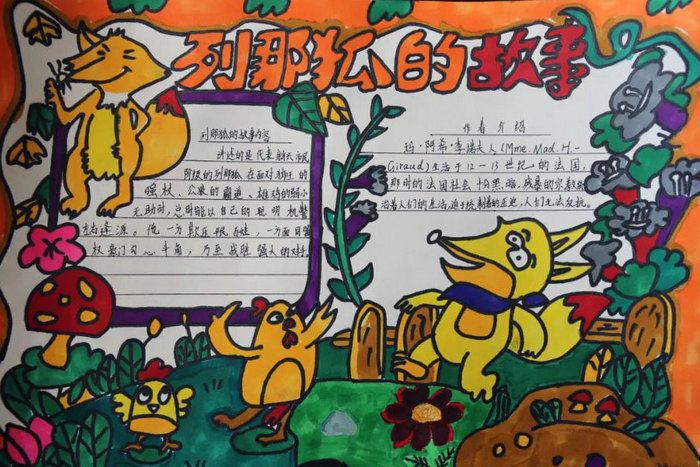 列那狐的故事
列那狐的故事内容
讲述的是代表新兴市民
阶级的列那狐,在面对狮王的
强权、公象的霸道、雄鸡的弱小
无助时,总时能以自己的聪明机智
左右逢源。他一方欺压平民百姓,一方面同
权豪门勾心斗角,乃至战胜强大的对手。
作者介绍
玛·阿希·季浩夫人(Mme. Mad. H.-
Giraud)生活于12—13世纪的法国,
那时的法国社会十分黑暗,残暴的宗教
沿着人们的生活,迫于统制者的压迫,人们无法反抗。